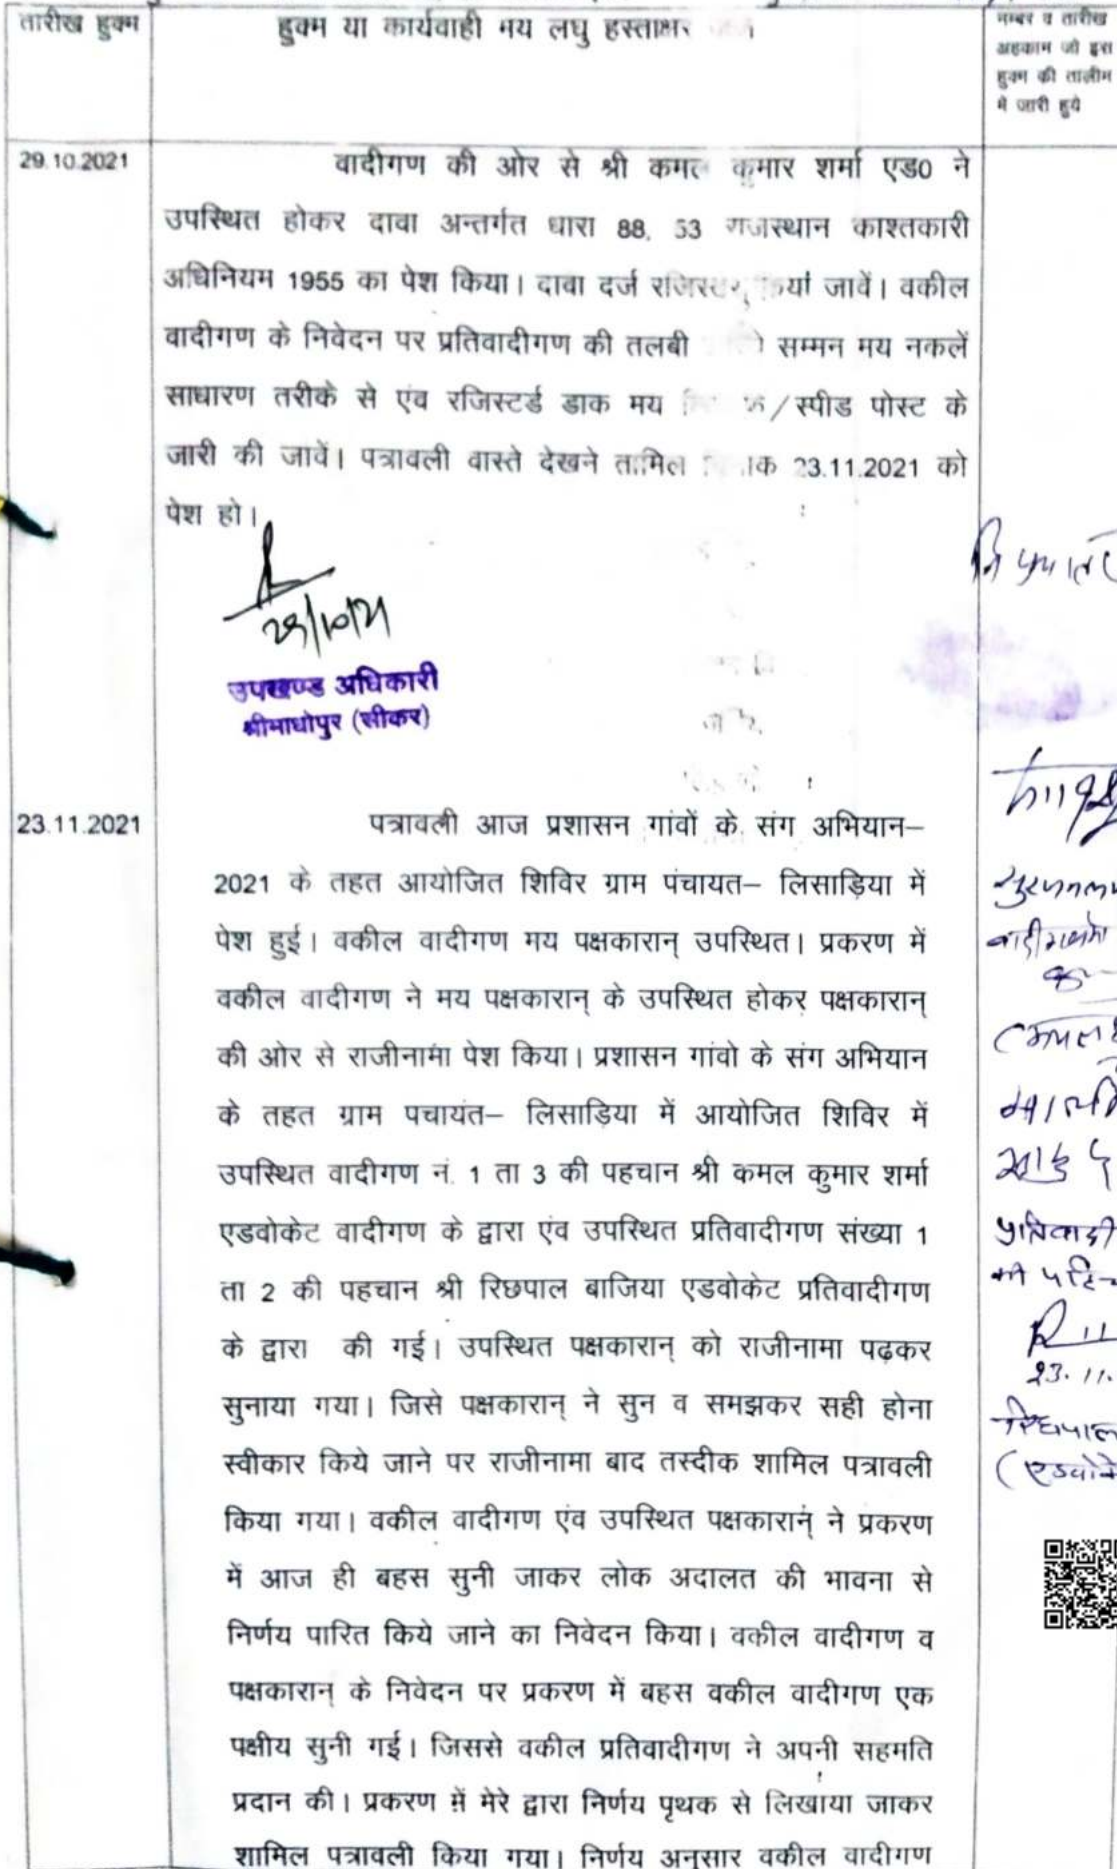 तारीख हुक्म
हुक्म या कार्यवाही मय लघु हस्ताक्षर
नम्बर व तारीख
अहकाम जो इस
हुक्म की तालीम
में जारी हुये
29.10.2021
वादीगण की ओर से श्री कमल कुमार शर्मा एड0 ने
उपस्थित होकर दावा अन्तर्गत धारा 88, 53 राजस्थान काश्तकारी
अधिनियम 1955 का पेश किया। दावा दर्ज रजिस्टर किया जावें। वकील
वादीगण के निवेदन पर प्रतिवादीगण की तलबी सम्मन मय नकलें
साधारण तरीके से एंव रजिस्टर्ड डाक मय /स्पीड पोस्ट के
जारी की जावें। पत्रावली वास्ते देखने तामिल 23.11.2021 को
पेश हो।
29/10/21
उपखण्ड अधिकारी
श्रीमाधोपुर (सीकर)
23.11.2021
पत्रावली आज प्रशासन गांवों के संग अभियान–
2021 के तहत आयोजित शिविर ग्राम पंचायत– लिसाड़िया में
पेश हुई। वकील वादीगण मय पक्षकारान् उपस्थित। प्रकरण में
वकील वादीगण ने मय पक्षकारान् के उपस्थित होकर पक्षकारान्
की ओर से राजीनामा पेश किया। प्रशासन गांवो के संग अभियान
के तहत ग्राम पचायंत– लिसाड़िया में आयोजित शिविर में
उपस्थित वादीगण नं. 1 ता 3 की पहचान श्री कमल कुमार शर्मा
एडवोकेट वादीगण के द्वारा एंव उपस्थित प्रतिवादीगण संख्या 1
ता 2 की पहचान श्री रिछपाल बाजिया एडवोकेट प्रतिवादीगण
के द्वारा की गई। उपस्थित पक्षकारान् को राजीनामा पढ़कर
सुनाया गया। जिसे पक्षकारान् ने सुन व समझकर सही होना
स्वीकार किये जाने पर राजीनामा बाद तस्दीक शामिल पत्रावली
किया गया। वकील वादीगण एंव उपस्थित पक्षकारान् ने प्रकरण
में आज ही बहस सुनी जाकर लोक अदालत की भावना से
निर्णय पारित किये जाने का निवेदन किया। वकील वादीगण व
पक्षकारान् के निवेदन पर प्रकरण में बहस वकील वादीगण एक
पक्षीय सुनी गई। जिससे वकील प्रतिवादीगण ने अपनी सहमति
प्रदान की। प्रकरण में मेरे द्वारा निर्णय पृथक से लिखाया जाकर
शामिल पत्रावली किया गया। निर्णय अनुसार वकील वादीगण
प्रतिवादी
23.11.
रिछपाल